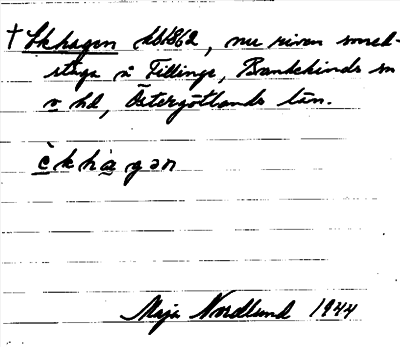 † Ekhagen hbl862, nu riven smed-
stuga å Fillinge, Bankekinds sn
o hd, Östergötlands län.
èkhàgən
Maja Nordlund 1944